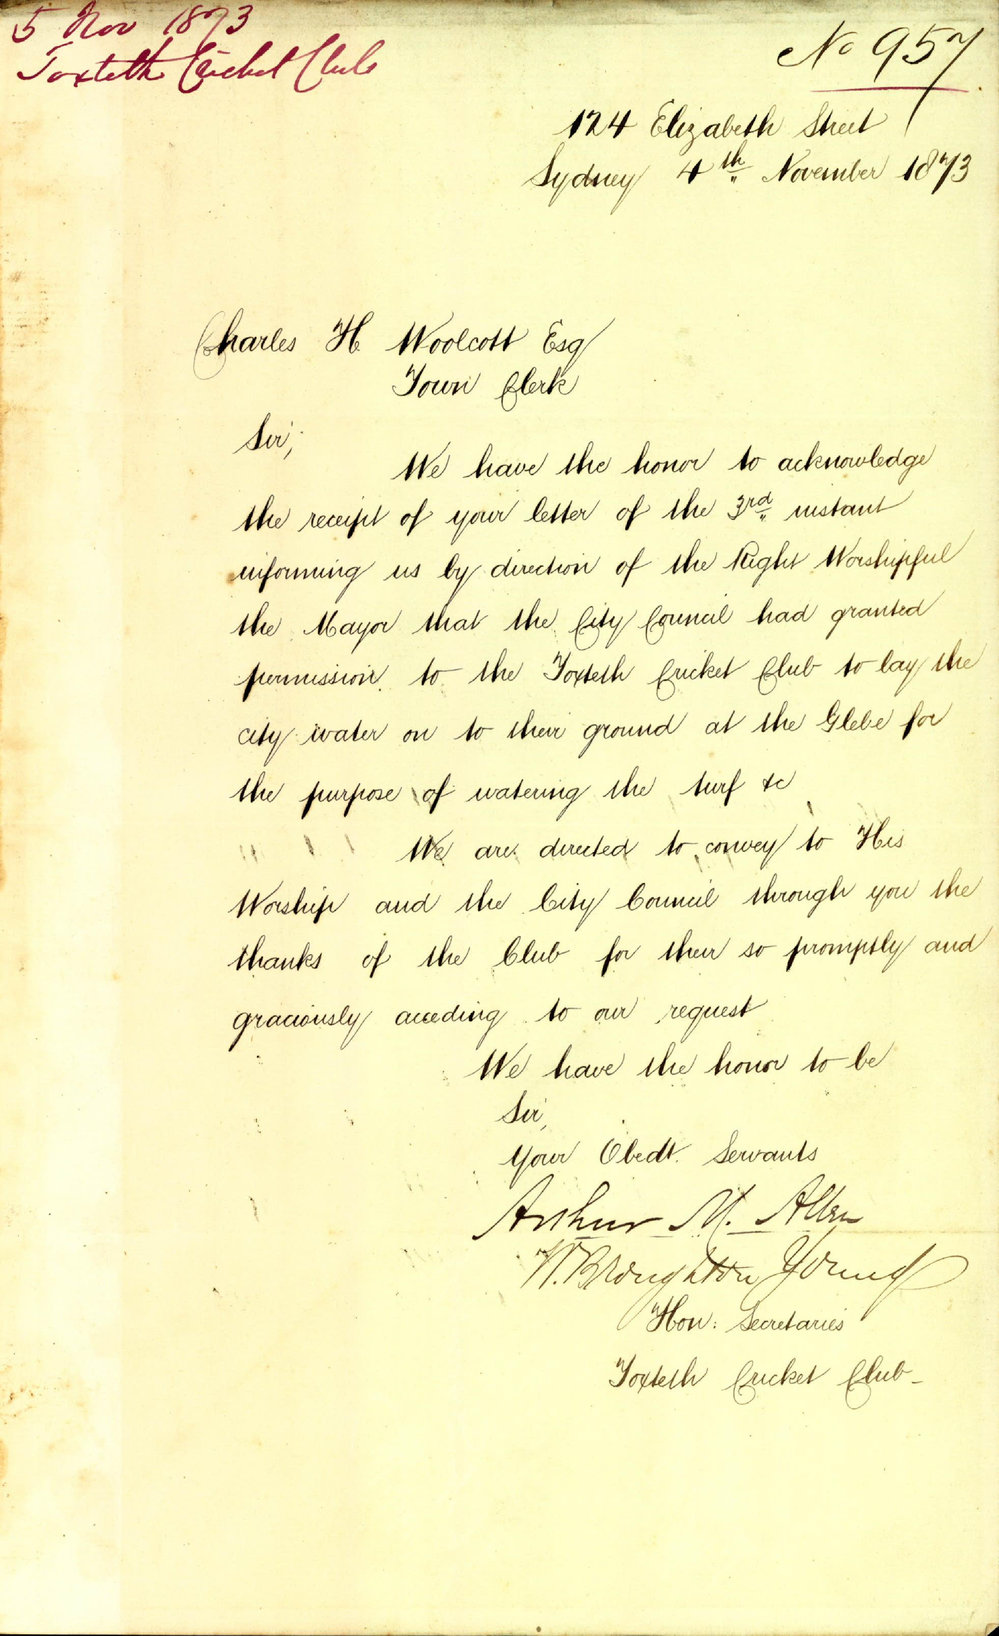 5 Nov 1873
Toxteth Cricket Club
No 957
124 Elizabeth Street
Sydney 4th November 1873
Charles H. Woolcott Esq
Town Clerk
Sir,
We have the honor to acknowledge
the receipt of your letter of the 3rd instant
informing us by direction of the Right Worshipful
the Mayor that the City Council had granted
permission to the Toxteth Cricket Club to lay the
city water on to their ground at the Glebe for
the purpose of watering the turf &c
We are directed to convey to His
Worship and the City Council through you the
thanks of the Club for their so promptly and
graciously acceding to our request
We have the honor to be
Sir,
Your Obedt. Servants
Arthur M. Allen
W. Broughton Young
Hon: Secretaries
Toxteth Cricket Club-